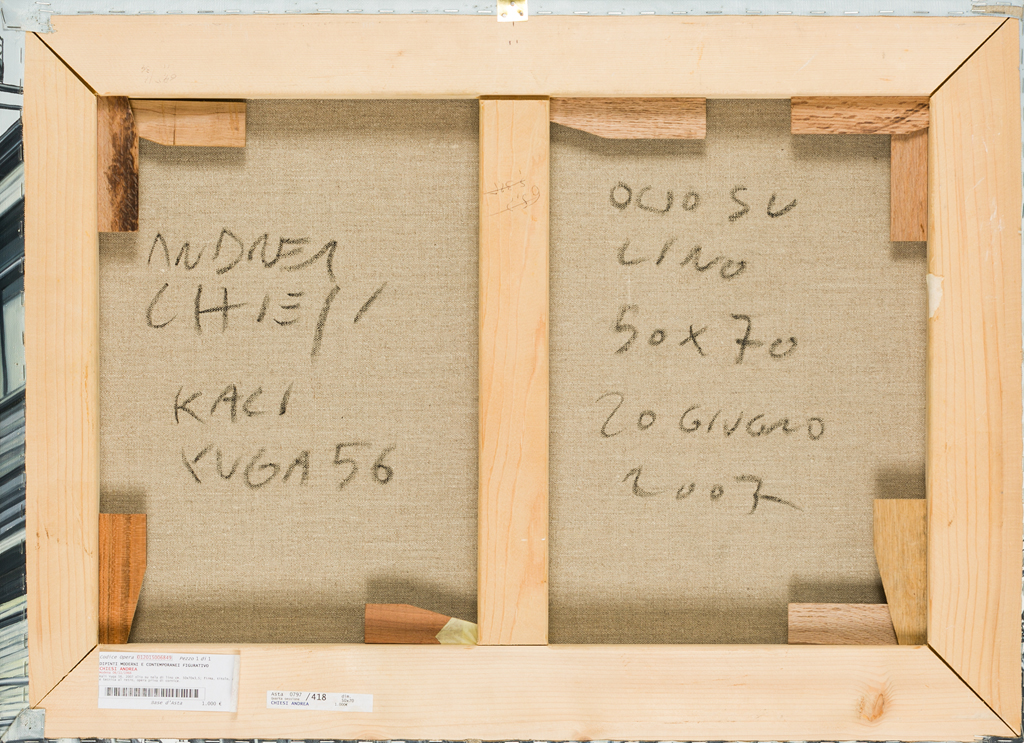 ANDREA
CHIESI
KALI
YUGA 56
OLIO SU
LINO
50x70
20 GIUGNO
2007
Codice Opera
Pezzo 1 di 1
DIPINTI MODERNI E CONTEMPORANEI FIGURATIVO
CHIESI ANDREA
Base d'Asta 1,000 €
Asta 0797 /418
CHIESI ANDREA